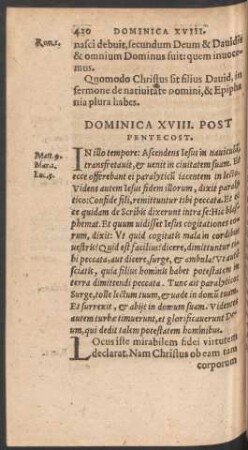 410 DOMINICA XVIII.
Rom.1.
nasci debuit, secundum Deum & Dauidis
& omnium Dominus fuit: quem inuocemus.
Quomodo Christus sit filius Dauid, in
sermone de natiuitate Domini, & Epiphania
plura habes.
DOMINICA XVIII. POST
PENTECOST.
Matt.9.
Mar.2.
Luc.5.
IN illo tempore: Ascendens Iesus in nauiculã,
transfretauit, & uenit in ciuitatem suam. Et
ecce offerebant ei paralyticũ iacentem in lecto.
Videns autem Iesus fidem illorum, dixit paralytico:
Confide fili, remittuntur tibi peccata. Et ecce
quidam de Scribis dixerunt intra se: Hic blasphemat.
Et quum uidisset Iesus cogitationes eorum,
dixit: Vt quid cogitatis mala in cordibus
uestris? Quid est facilius dicere, dimittuntur tibi
peccata, aut dicere, surge, & ambula? Vt autẽ
sciatis, quia filius hominis habet potestatem in
terra dimittendi peccata. Tunc ait paralytico:
Surge, tolle lectum tuum, & uade in domũ tuam.
Et surrexit, & abijt in domum suam. Videntes
autem turbæ timuerunt, et glorificauerunt Deum,
qui dedit talem potestatem hominibus.
LOcus iste mirabilem fidei virtutem
declarat. Nam Christus ob eam tam
corporum